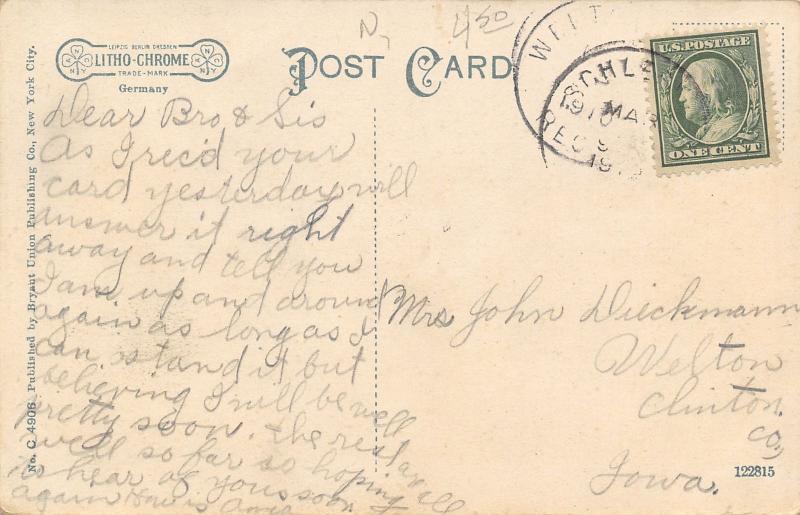 N,
4 50
LEIPZIG BERLIN DRESDEN
LITHO-CHROME
TRADE-MARK
Germany
POST CARD
U.S. POSTAGE
ONE CENT
MAR
REC
9
Dear Bro & Sis
As I rec'd your
card yesterday will
answer it right
away and tell you
I am up and around
again as long as I
can stand it but
believing I will be well
pretty soon. the rest are all
well so far so hoping
to hear of you soon
again How is
Mrs John Dieckmann
Welton
Clinton
Co,
Iowa.
122815
No. C 4906 Published by Bryant Union Publishing Co., New York City.